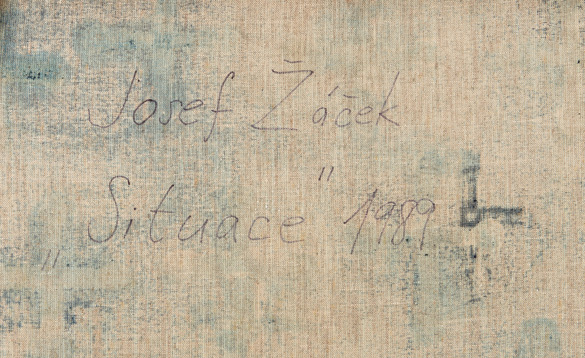 Josef Žáček
„Situace" 1989